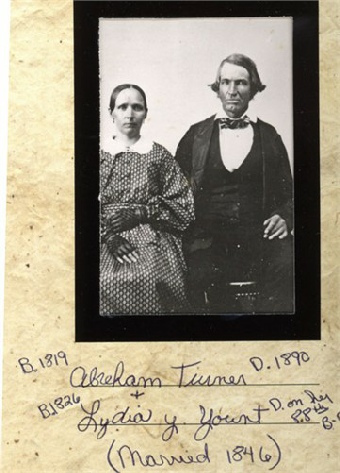 B. 1819 Abraham Turner D. 1890
+
B1826 Lydia y. Yount D. on her
88th B-
(Married 1846)